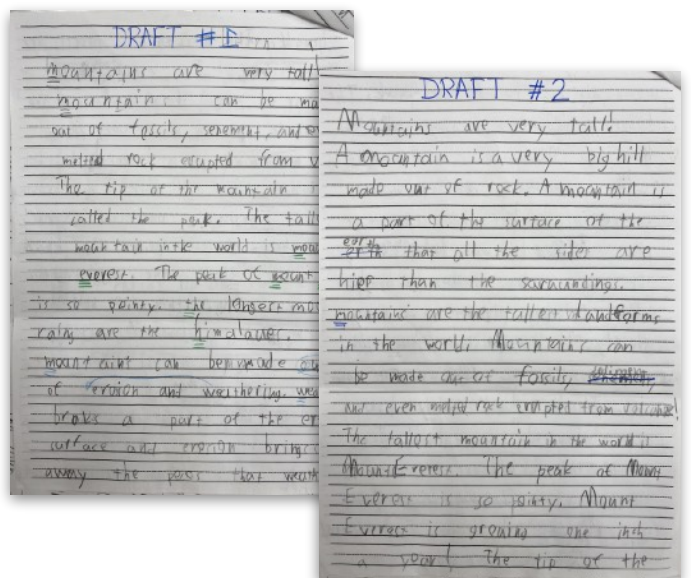 DRAFT #1
mountains are very tall!
mountain can be ma
out of fossils, senement, and
melted rock erupted from v
The tip of the mountain
called the peak. The tall
mountain in the world is mou
everest. The peak of mount
is so pointy. the longest mo
rains are the himalayes.
mountains can be made
of erosion and weathering. wea
broks a part of the er
surface and erosion brings
away the peces that weath
DRAFT #2
Mountains are very tall!
A mountain is a very big hill
made out of rock. A mountain is
a part of the surface of the
earth
that all the sides are
hier than the suraundings.
mountains are the tallest landforms
in the world. Mountains can
be made out of fossils, sediment,
and even melted rock erupted from volcanoe!
The tallest mountain in the world is
Mount Everest. The peak of Mount
Everest is so pointy. Mount
Everest is growing one inch
a year! The tip of the